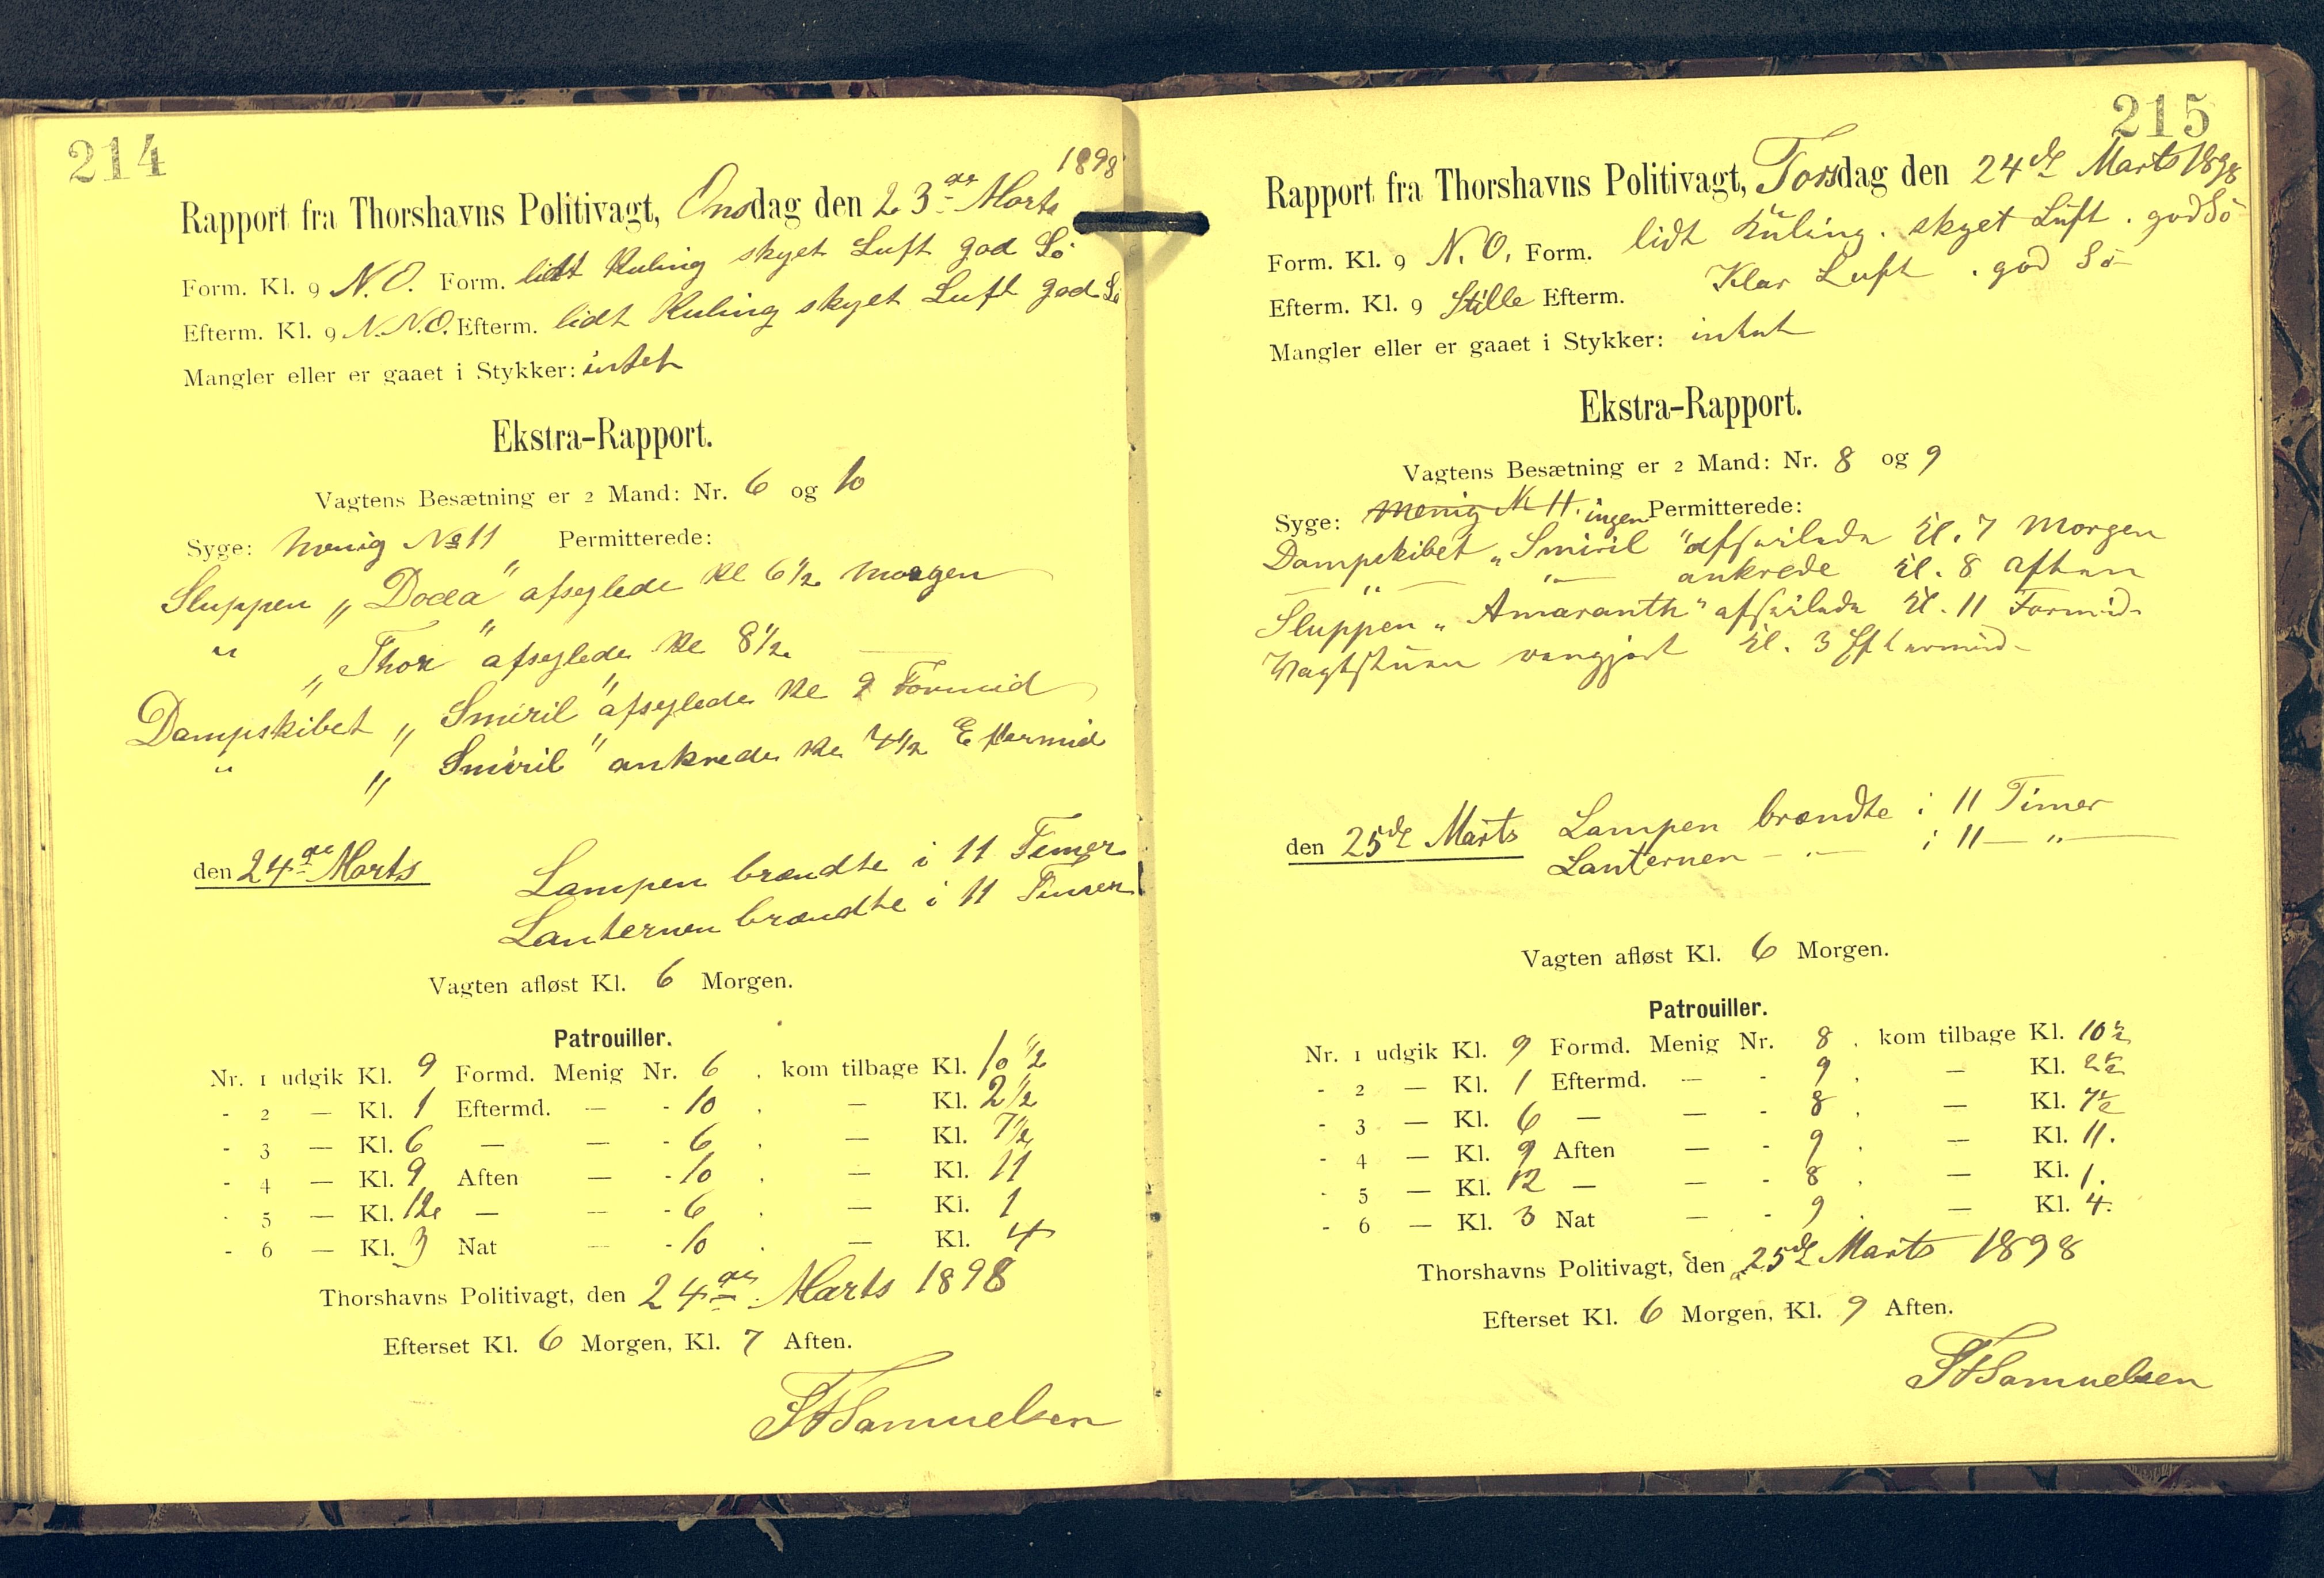 214
1898
Rapport fra Thorshavns Politivagt, Onsdag den 23de Marts
Form. Kl. 9 N.O. Form. lidt Kuling skyet Luft god Sö
Efterm. Kl. 9 N.N.O. Efterm. lidt Kuling skyet Luft god Sö
Mangler eller er gaaet i Stykker: intet
Ekstra-Rapport.
Vagtens Besætning er 2 Mand: Nr. 6 og 10
Syge: Menig No 11 Permitterede:
Sluppen „ Docea" afseglede Kl 6½ morgen
" „ Thor" afseglede Kl 8½ —
Dampskibet „ Smiril" afseglede Kl 9 Formid
" „ Smiril" ankrede Kl 4½ Eftermid
den 24de Marts Lampen brændte i 11 Timer
Lanternen brændte i 11 Timer
Vagten afløst Kl. 6 Morgen.
Patrouiller.
Nr. 1 udgik Kl. 9 Formd. Menig Nr. 6 . kom tilbage Kl. 10½
- 2 — Kl. 1 Eftermd. — - 10 . — Kl. 2½
- 3 — Kl. 6 — — - 6 . — Kl. 7½
- 4 — Kl. 9 Aften — - 10 . — Kl. 11
- 5 — Kl. 12 — — - 6 . — Kl. 1
- 6 — Kl. 3 Nat — - 10 . — Kl. 4
Thorshavns Politivagt, den 24de Marts 1898
Efterset Kl. 6 Morgen, Kl. 7 Aften.
Samuelsen
215
Rapport fra Thorshavns Politivagt, Torsdag den 24de Marts 1898
Form. Kl. 9 N.O. Form. lidt Kuling. skyet Luft. god Sö
Efterm. Kl. 9 Stille Efterm. Klar Luft . god Sö
Mangler eller er gaaet i Stykker: intet
Ekstra-Rapport.
Vagtens Besætning er 2 Mand: Nr. 8 og 9
Syge: Menig N 11. ingen Permitterede:
Dampskibet „Smiril" afseilede Kl. 7 Morgen
— " — " — ankrede Kl. 8 Aften
Sluppen „ Amaranth" afseilede Kl. 11 Formid-
Vagtstuen rengjort Kl. 3 Eftermid-
den 25de Marts Lampen brændte i 11 Timer
Lanternen — " — i 11 — " —
Vagten afløst Kl. 6 Morgen.
Patrouiller.
Nr. 1 udgik Kl. 9 Formd. Menig Nr. 8 . kom tilbage Kl. 10½
- 2 — Kl. 1 Eftermd. — - 9 . — Kl. 2½
- 3 — Kl. 6 — — - 8 . — Kl. 7½
- 4 — Kl. 9 Aften — - 9 . — Kl. 11.
- 5 — Kl. 12 — — - 8 . — Kl. 1.
- 6 — Kl. 3 Nat — - 9 . — Kl. 4.
Thorshavns Politivagt, den 25de Marts 1898
Efterset Kl. 6 Morgen, Kl. 9 Aften.
Samuelsen